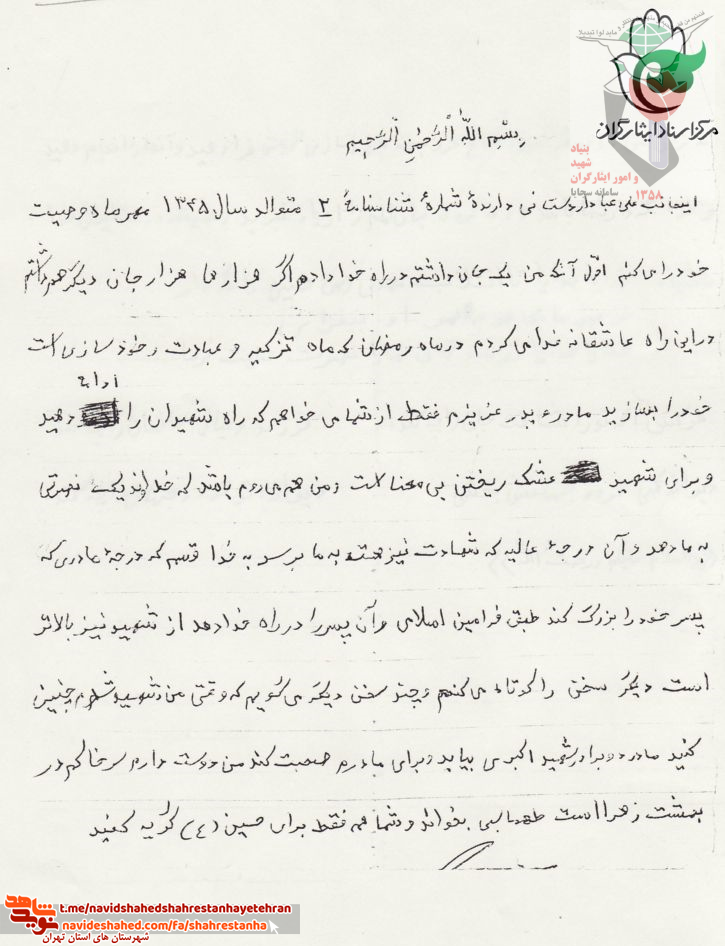 مرکز اسناد ایثارگران
بنیاد
شهید
و امور ایثارگران
۱۳۵۸ سامانه سجایا
بِسْمِ اللّهِ الْرَّحْمٰنِ الْرَّحِیمِ
اینجانب علی عباداردستانی دارندهٔ شمارهٔ شناسنامهٔ ۲ متوالد سال ۱۳۴۵ مهرماه وصیت
خود را می کنم اوّل آنکه من یک جان داشتم در راه خدا دادم اگر هزارها هزار جان دیگر هم داشتم
در این راه عاشقانه فدا می کردم در ماه رمضان که ماه تزکیه و عبادت و خودسازی است
خود را بسازید مادر و پدر عزیزم فقط از شما می خواهم که راه شهیدان را ادامه دهید
و برای شهید عشک ریختن بی معنا است و من هم می روم باشد که خداوند یک نصرتی
به ما دهد و آن درجهٔ عالیه که شهادت نیز هسته به ما برسد به خدا قسم که درجهٔ مادری که
پسر خود را بزرگ کند طبق فرامین اسلامی و آن پسر را در راه خدا دهد از شهید نیز بالاتر
است دیگر سخن را کوتاه می کنم و چند سخن دیگه می گویم که وقتی من شهید شدم چنین
کنید مادر و برادر شهید اکبری بیاید و برای مادرم صحبت کند من دوست دارم سر خاکم در
بهشت زهرا است طهماسبی بخواند و شما همه فقط برای حسین (ع) گریه کنید
نوید شاهد
t.me/navidshahedshahrestanhayetehran
navideshahed.com/fa/shahrestanha
شهرستان های استان تهران